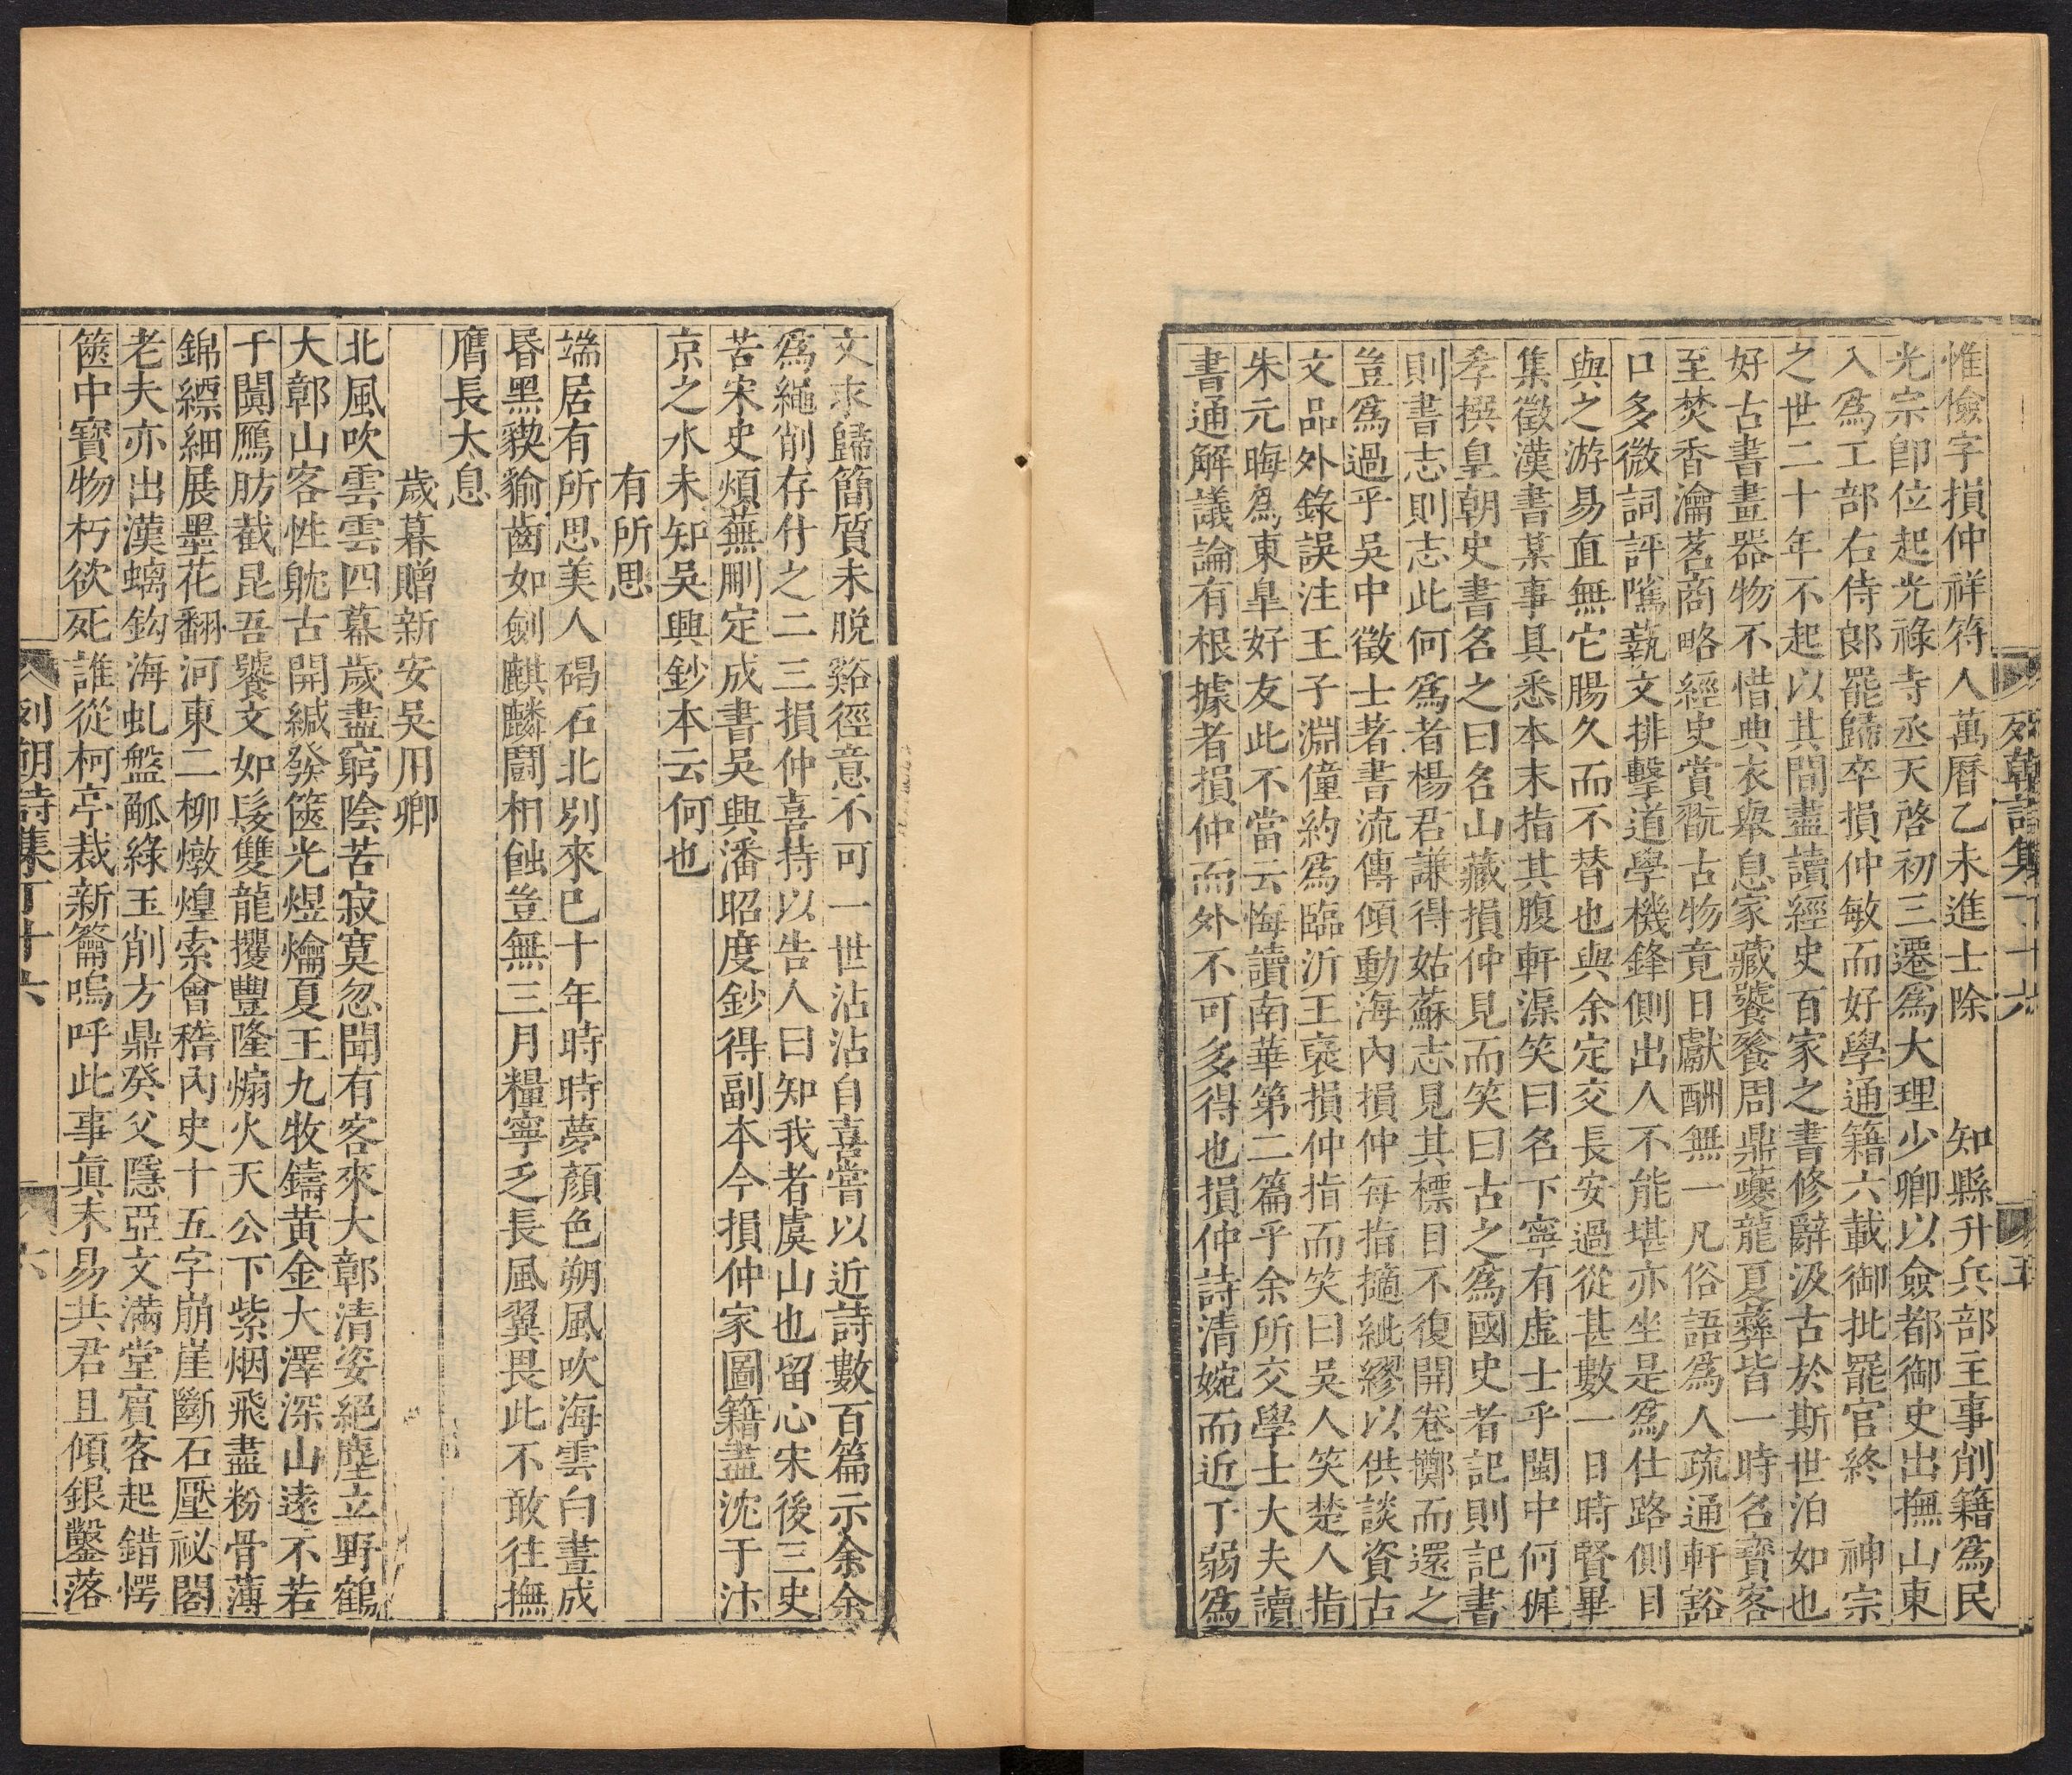 惟儉字損仲祥符人萬曆乙未進士除　知縣升兵部主事削籍爲民
光宗即位起光祿寺丞天啓初三遷爲大理少卿以僉都御史出撫山東
入爲工部右侍郎罷歸卒損仲敏而好學通籍六載御批罷官終　神宗
之世二十年不起以其間盡讀經史百家之書修辭汲古於斯世泊如也
好古書畫器物不惜典衣舉息家藏饕餮周鼎夔龍夏彝皆一時名寶客
至焚香瀹茗商略經史賞翫古物竟日獻酬無一凡俗語爲人疏通軒豁
口多微詞評隲蓺文排擊道學機鋒側出人不能堪亦坐是爲仕路側目
與之游易直無它腸久而不替也與余定交長安過從甚數一日時賢畢
集徵漢書某事具悉本末指其腹軒渠笑曰名下寧有虛士乎閩中何稺
孝撰皇朝史書名之曰名山藏損仲見而笑曰古之爲國史者記則記書
則書志則志此何爲者楊君謙得姑蘇志見其標目不復開卷擲而還之
豈爲過乎吳中徵士著書流傳傾動海內損仲每指擿紕繆以供談資古
文品外錄誤注王子淵僮約爲臨沂王裒損仲指而笑曰吳人笑楚人指
朱元晦爲東臯好友此不當云悔讀南華第二篇乎余所交學士大夫讀
書通解議論有根據者損仲而外不可多得也損仲詩清婉而近于弱爲
列朝詩集丁十六
五
文求歸簡質未脫谿徑意不可一世沾沾自喜嘗以近詩數百篇示余余
爲繩削存什之二三損仲喜持以告人曰知我者虞山也留心宋後三史
苦宋史煩蕪刪定成書吳興潘昭度鈔得副本今損仲家圖籍盡沈于汴
京之水未知吳興鈔本云何也
有所思
端居有所思美人碣石北別來已十年時時夢顏色朔風吹海雲白晝成
昏黑猰㺄齒如劍麒麟鬪相蝕豈無三月糧寧乏長風翼畏此不敢往撫
膺長太息
歲暮贈新安吳用卿
北風吹雲雲四幕歲盡窮陰苦寂寞忽聞有客來大鄣清姿絕塵立野鶴
大鄣山客性躭古開緘發篋光煜爚夏王九牧鑄黃金大澤深山遠不若
于闐鴈肪截昆吾饕文如髮雙龍攫豐隆煽火天公下紫烟飛盡粉骨薄
錦縹細展墨花翻河東二柳燉煌索會稽內史十五字崩崖斷石壓祕閣
老夫亦出漢螭鈎海虬盤觚綠玉削方鼎癸父隱亞文滿堂賓客起錯愕
篋中寶物朽欲死誰從柯亭裁新籥嗚呼此事眞未易共君且傾銀鑿落
列朝詩集丁十六
六